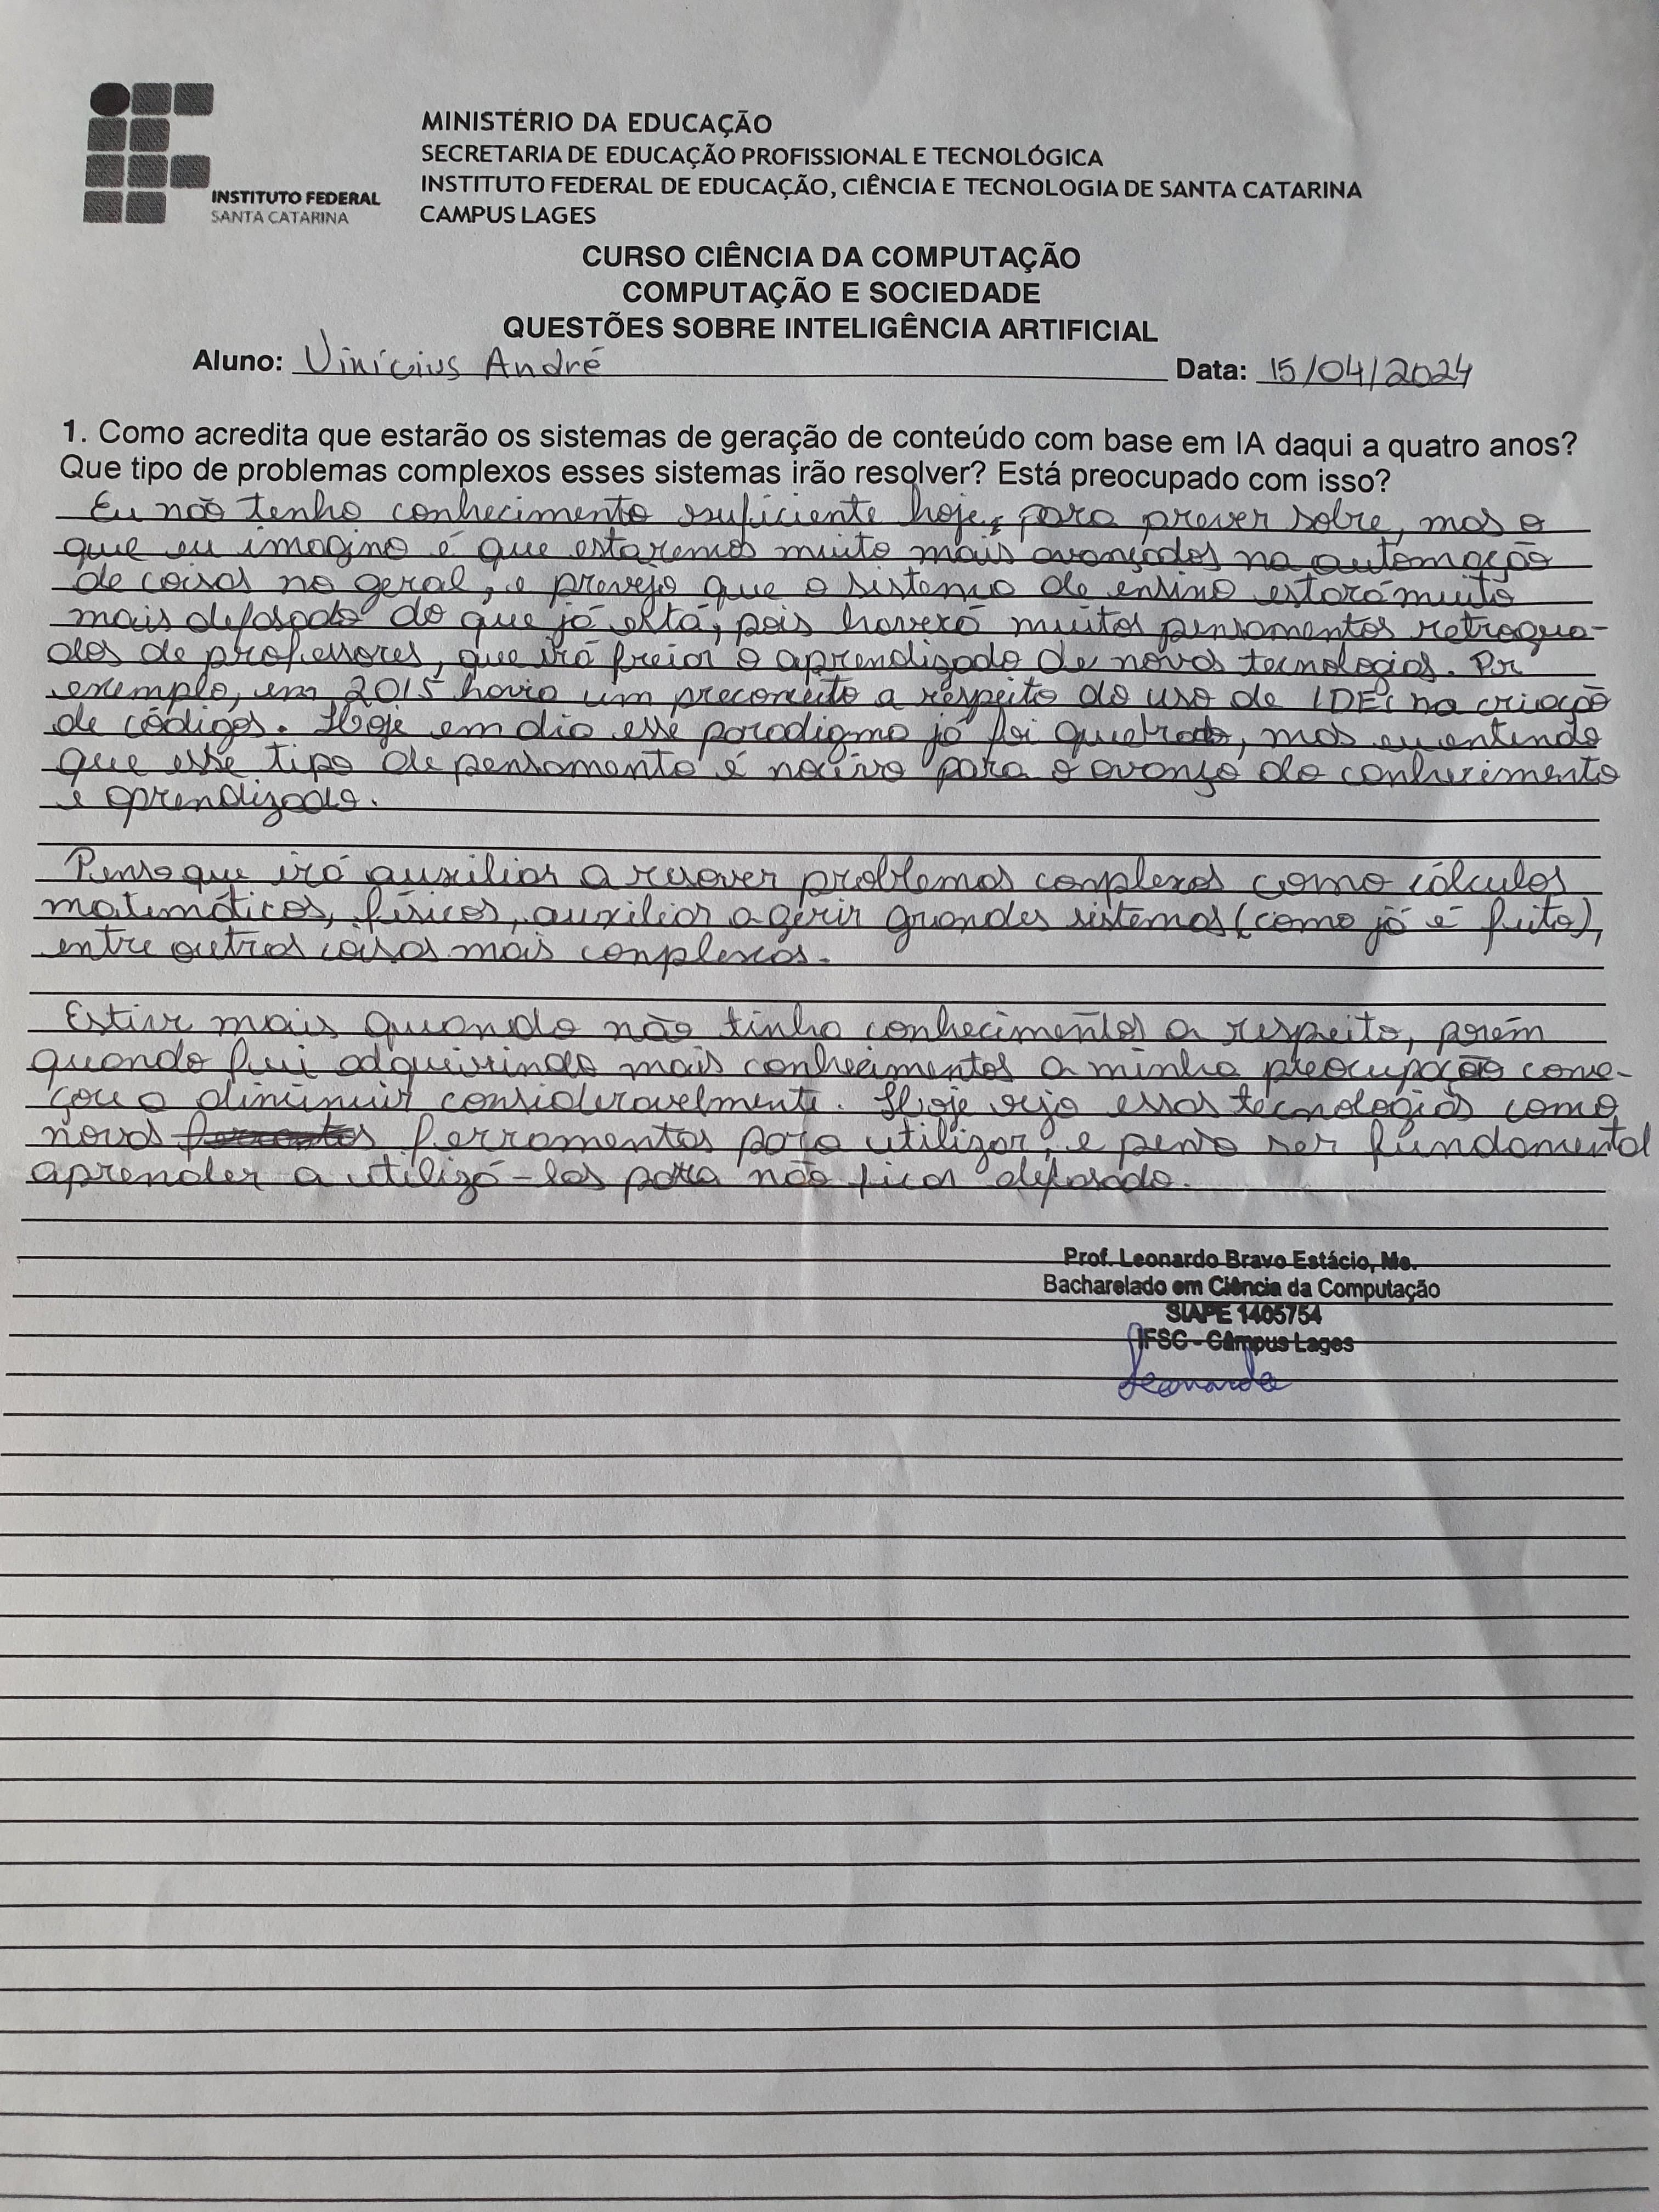 INSTITUTO FEDERAL
SANTA CATARINA
MINISTÉRIO DA EDUCAÇÃO
SECRETARIA DE EDUCAÇÃO PROFISSIONAL E TECNOLÓGICA
INSTITUTO FEDERAL DE EDUCAÇÃO, CIÊNCIA E TECNOLOGIA DE SANTA CATARINA
CAMPUS LAGES
CURSO CIÊNCIA DA COMPUTAÇÃO
COMPUTAÇÃO E SOCIEDADE
QUESTÕES SOBRE INTELIGÊNCIA ARTIFICIAL
Aluno: Vinícius André Data: 15/04/2024
1. Como acredita que estarão os sistemas de geração de conteúdo com base em IA daqui a quatro anos?
Que tipo de problemas complexos esses sistemas irão resolver? Está preocupado com isso?
Eu não tenho conhecimento suficiente hoje, para prever sobre, mas o
que eu imagino é que estaremos muito mais avançados na automação
de coisas no geral, e prevejo que o sistema de ensino estará muito
mais defasado do que já está, pois haverá muitos pensamentos retrogua-
dos de professores, que irá freiar o aprendizado de novas tecnologias. Por
exemplo, em 2015 havia um preconceito a respeito do uso de IDEs na criação
de códigos. Hoje em dia esse paradigma já foi quebrado, mas eu entendo
que esse tipo de pensamento é nocivo para o avanço do conhecimento
e aprendizado.
Penso que irá auxiliar a resover problemas complexos como cálculos
matemáticos, físicos, auxiliar a gerir grandes sistemas (como já é feito),
entre outras coisas mais complexas.
Estive mais quando não tinha conhecimentos a respeito, porém
quando fui adquirindo mais conhecimentos a minha preocupação come-
çou a diminuir consideravelmente. Hoje vejo essas tecnologias como
novas ferramentas para utilizar, e penso ser fundamental
aprender a utilizá-las para não ficar defasado.
Prof. Leonardo Bravo Estácio, Me.
Bacharelado em Ciência da Computação
SIAPE 1405754
IFSC - Câmpus Lages
Leonardo